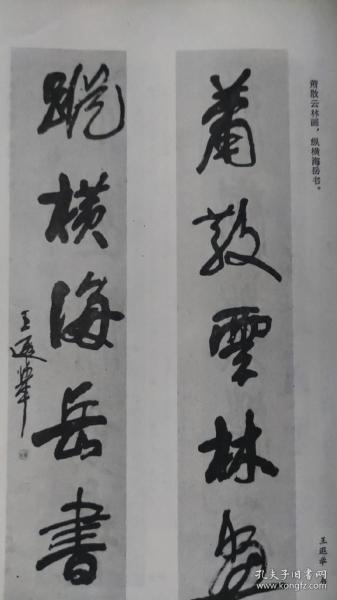 萧散云林画，纵横海岳书。
蕭散雲林畫
蹤橫海岳書
王遐举
王遐举
孔夫子旧书网